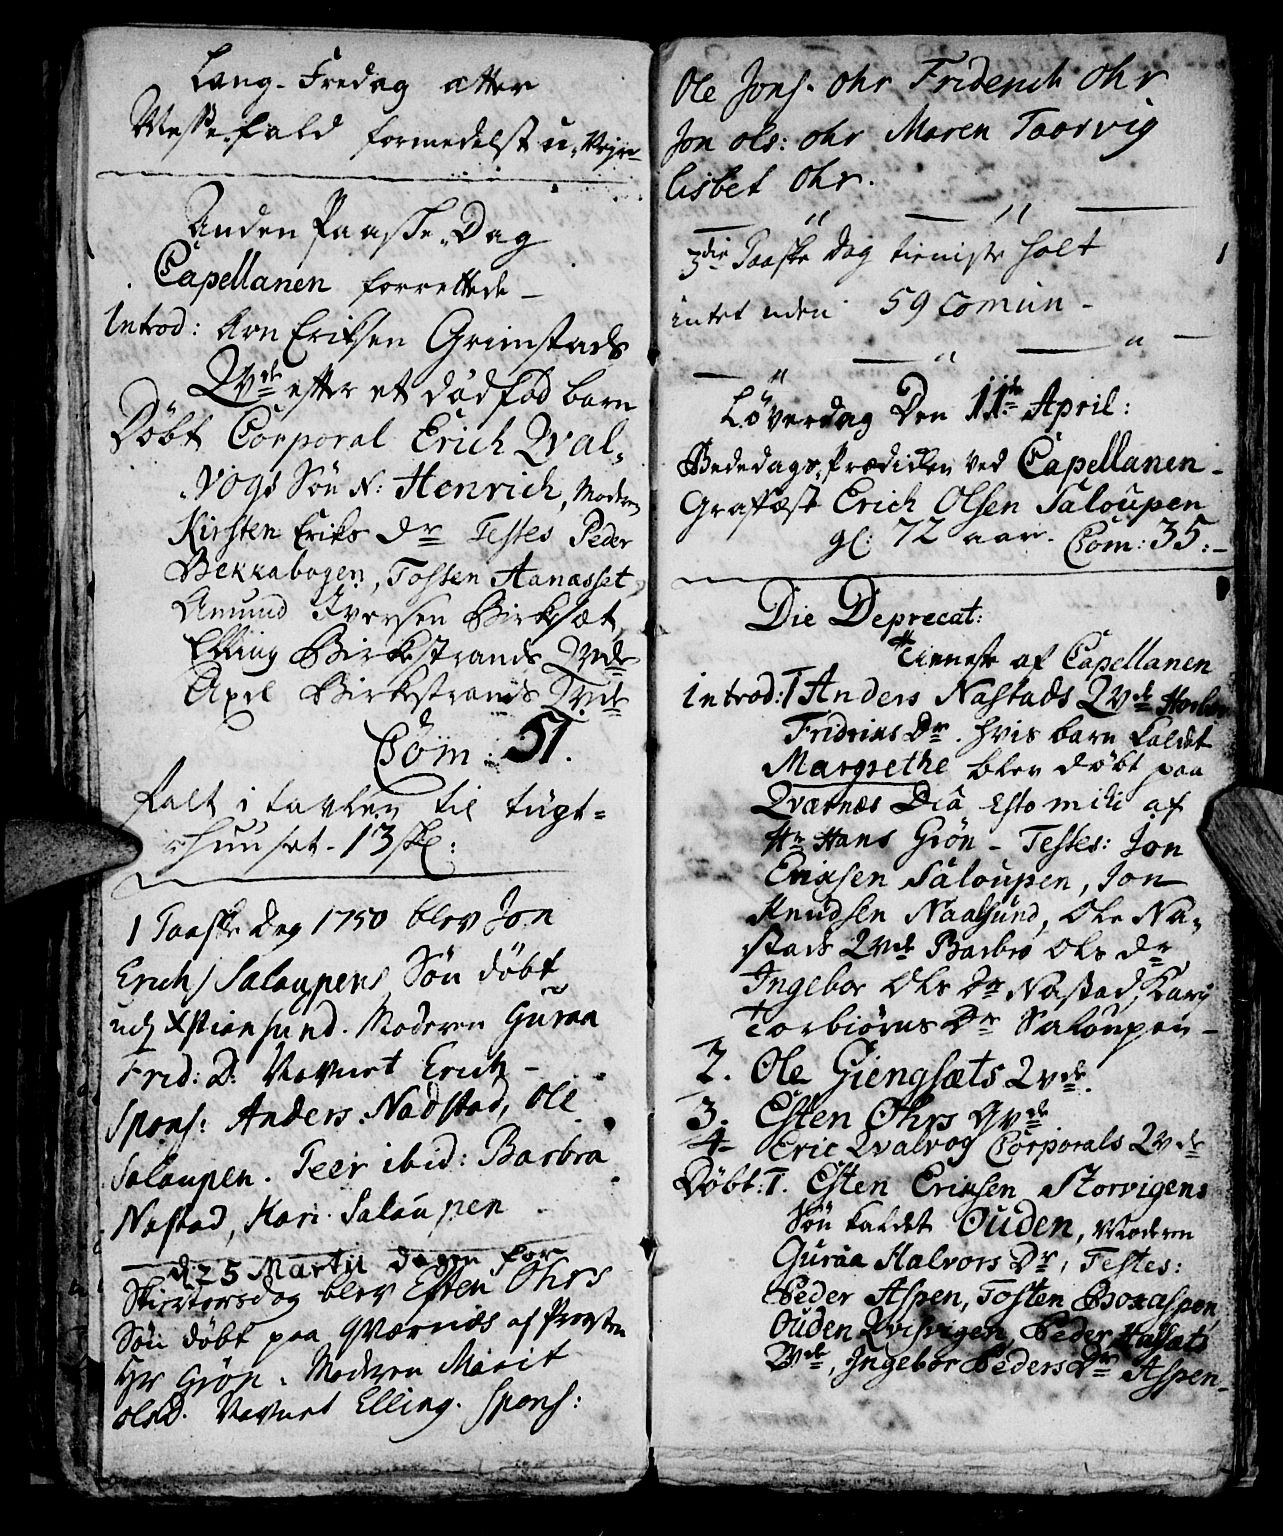 Lang-Fredag atter
Messefald formedelst u-Vejr
Anden Paaske-Dag
Capellanen forrettede -
Introd: Arn Eriksen Grimstads
Qvde efter et dødfød barn
Døbt Corporal Erich Qval-
vogs Søn N: Henrich, Moderen
Kirsten Eriks Dr Testes Peder
Bekkabogen, Tosten Aanasset,
Amund Iversen Birksæt,
Elling Birkestrands Qvde
Axel Birkestrands Qvde
Com: 51.
falt i tavlen til tugt=
huuset - 13 sk:
1 Paaske Dag 1750 blev Jon
Erichs Saloupens Søn døbt
udj Xstiansund. Moderen Guraa
Frid: D: Nevnet Erich -
Spons: Anders Nadstad, Ole
Saloupen. Peer ibid: Barbra
Nastad, Kari Saloupen
d 25 Martii dagen for
Skiertorsdag blev Esten Ohrs
Søn døbt paa Qværnæs af Provsten
Hr Grøn. Moderen Marit
Olsd. Nevnet Elling. Spons:
Ole Jons. Ohr Friderich Ohr
Jon Ols: Ohr Maren Taarvig
Lisbet Ohr.
3die Paaske Dag tieniste holt
intet uden 59 Comun -
Løverdag Den 11te April:
Bededags-Prædiken ved Capellanen -
Grafæst Erich Olsen Saloupen
gl: 72 aar. Com: 35: -
Die Deprecat:
Tieneste af Capellanen
Introd: 1 Anders Nastads Qvde
Fridrics Dr. hvis barn kaldet
Margrethe blev døbt paa
Qværnæs Dia Esto mihi af
Hr Hans Grön - Testes: Jon
Erichsen Saloupen, Jon
Knudsen Naalsund, Ole Na-
stads Qvde Barbro Ols dr
Ingebor Ols Dr Nastad, Kary
Torbiørns Dr Saloupen -
2. Ole Giengsæts Qvde.
3. Esten Ohrs Qvde
4 Eric Qvalvog Corporals Qvde
Døbt: 1. Esten Eriksen Storvigens
Søn kaldet Ouden, Moderen
Guraa Halvors Dr, Testes:
Peder Aspen, Tosten Boxaspen,
Ouden Qvisvigen, Peder Hassæts
Qvde, Ingebor Peders Dr Aspen-